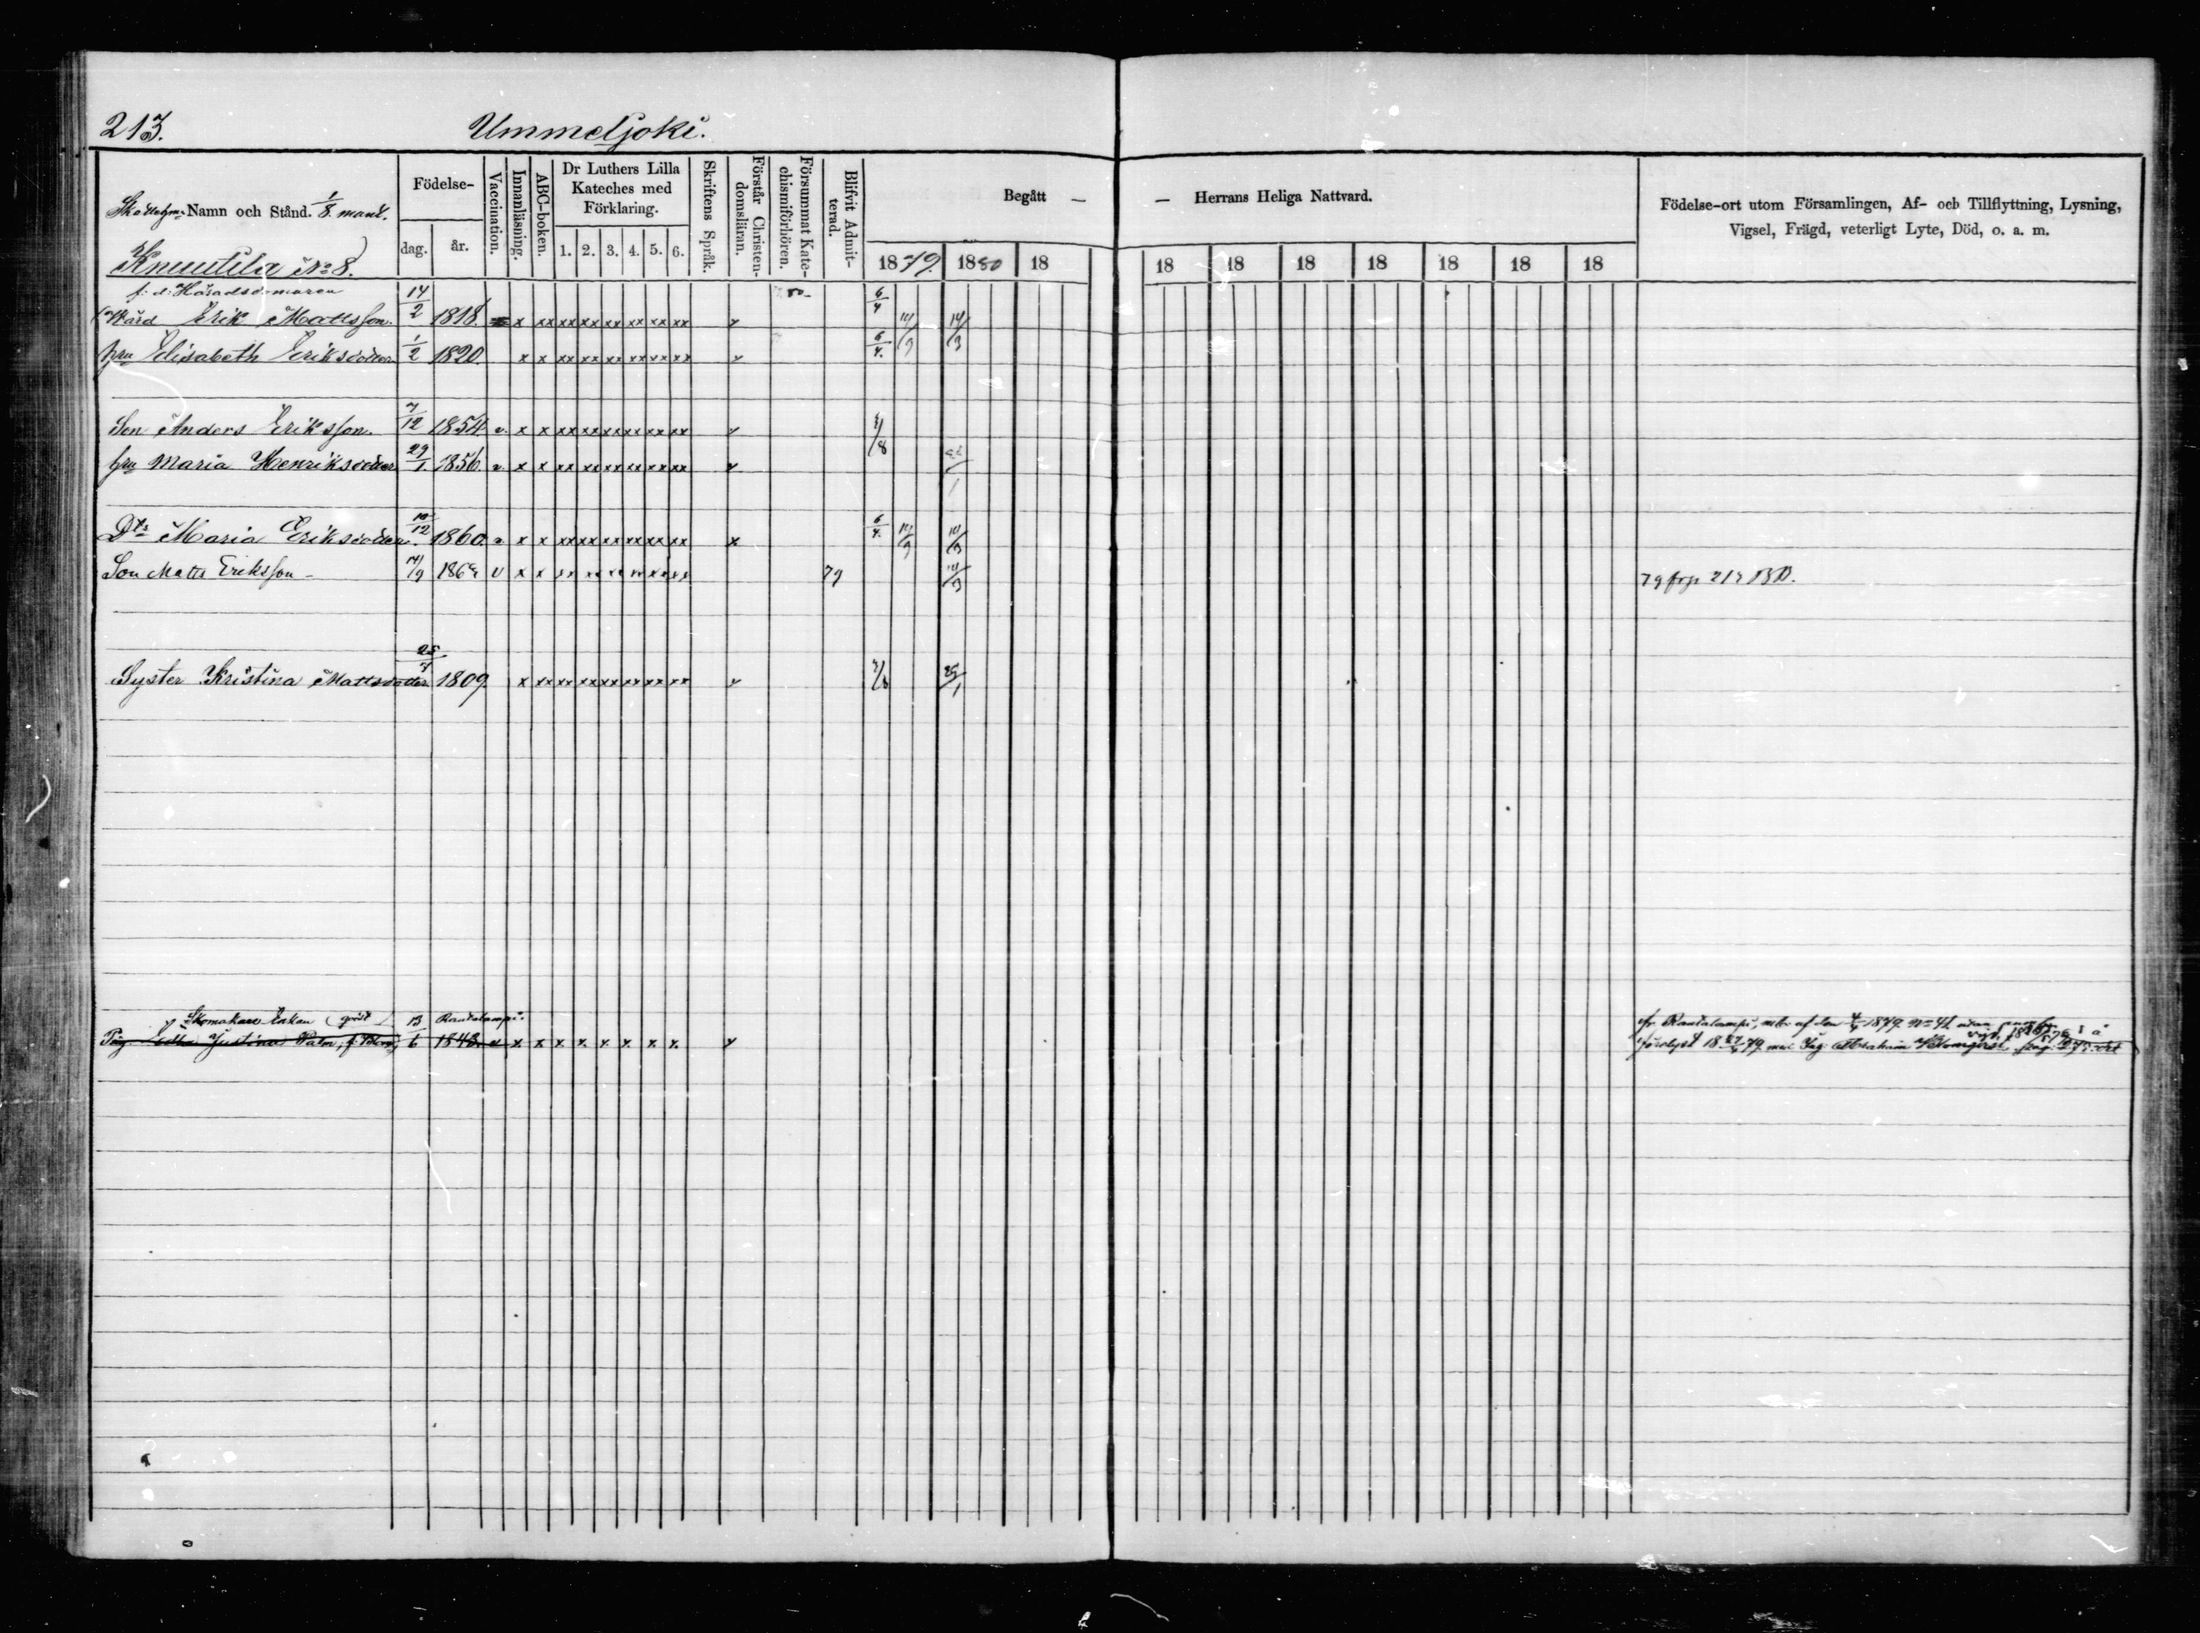 213. Ummeljoki.
Namn och Stånd. 1/8 mant.
Födelse-
dag. år.
Vaccination.
Innanläsning.
ABC-boken.
Dr Luthers Lilla
Kateches med
Förklaring.
1. 2. 3. 4. 5. 6.
Skriftens Språk.
Förstår Christen-
domsläran.
Försummat Kate-
chismiförhören.
Blifvit Admit-
terad.
Begått — — Herrans Heliga Nattvard.
1879. 1880 18 18 18 18 18 18 18 18
Födelse-ort utom Församlingen, Af- och Tillflyttning, Lysning,
Vigsel, Frägd, veterligt Lyte, Död, o. a. m.
Knuutila No 8.
f. d. Häradsdomaren 80
Erik Mattsson 14/2 1818 x xx xx xx xx xx xx xx 6/4 14/9 14/3
hru Elisabeth Eriksdotter 1/2 1820 x x xx xx xx xx xx xx 6/4
Son Anders Eriksson 7/12 1854 v. x x xx xx xx xx xx xx
hru Maria Henriksdotter 29/1 1856 v. x x xx xx xx xx xx xx
Dtr Maria Eriksdotter 10/12 1860 v x x xx xx xx xx xx xx x 6/4 14/9 14/3
Son Matts Eriksson 14/9 v x x xx xx xx xx xx xx 79 14/3 79 frp
Syster Kristina Mattsdotter 1809 x xx xx xx xx xx xx xx
Skomakare Enkan 13 Rautalampi.
Justina Palm, 6 1848 x x x x x x x x
fr. Rautalampi, 1879 No 42 utan
1879 med Abraham